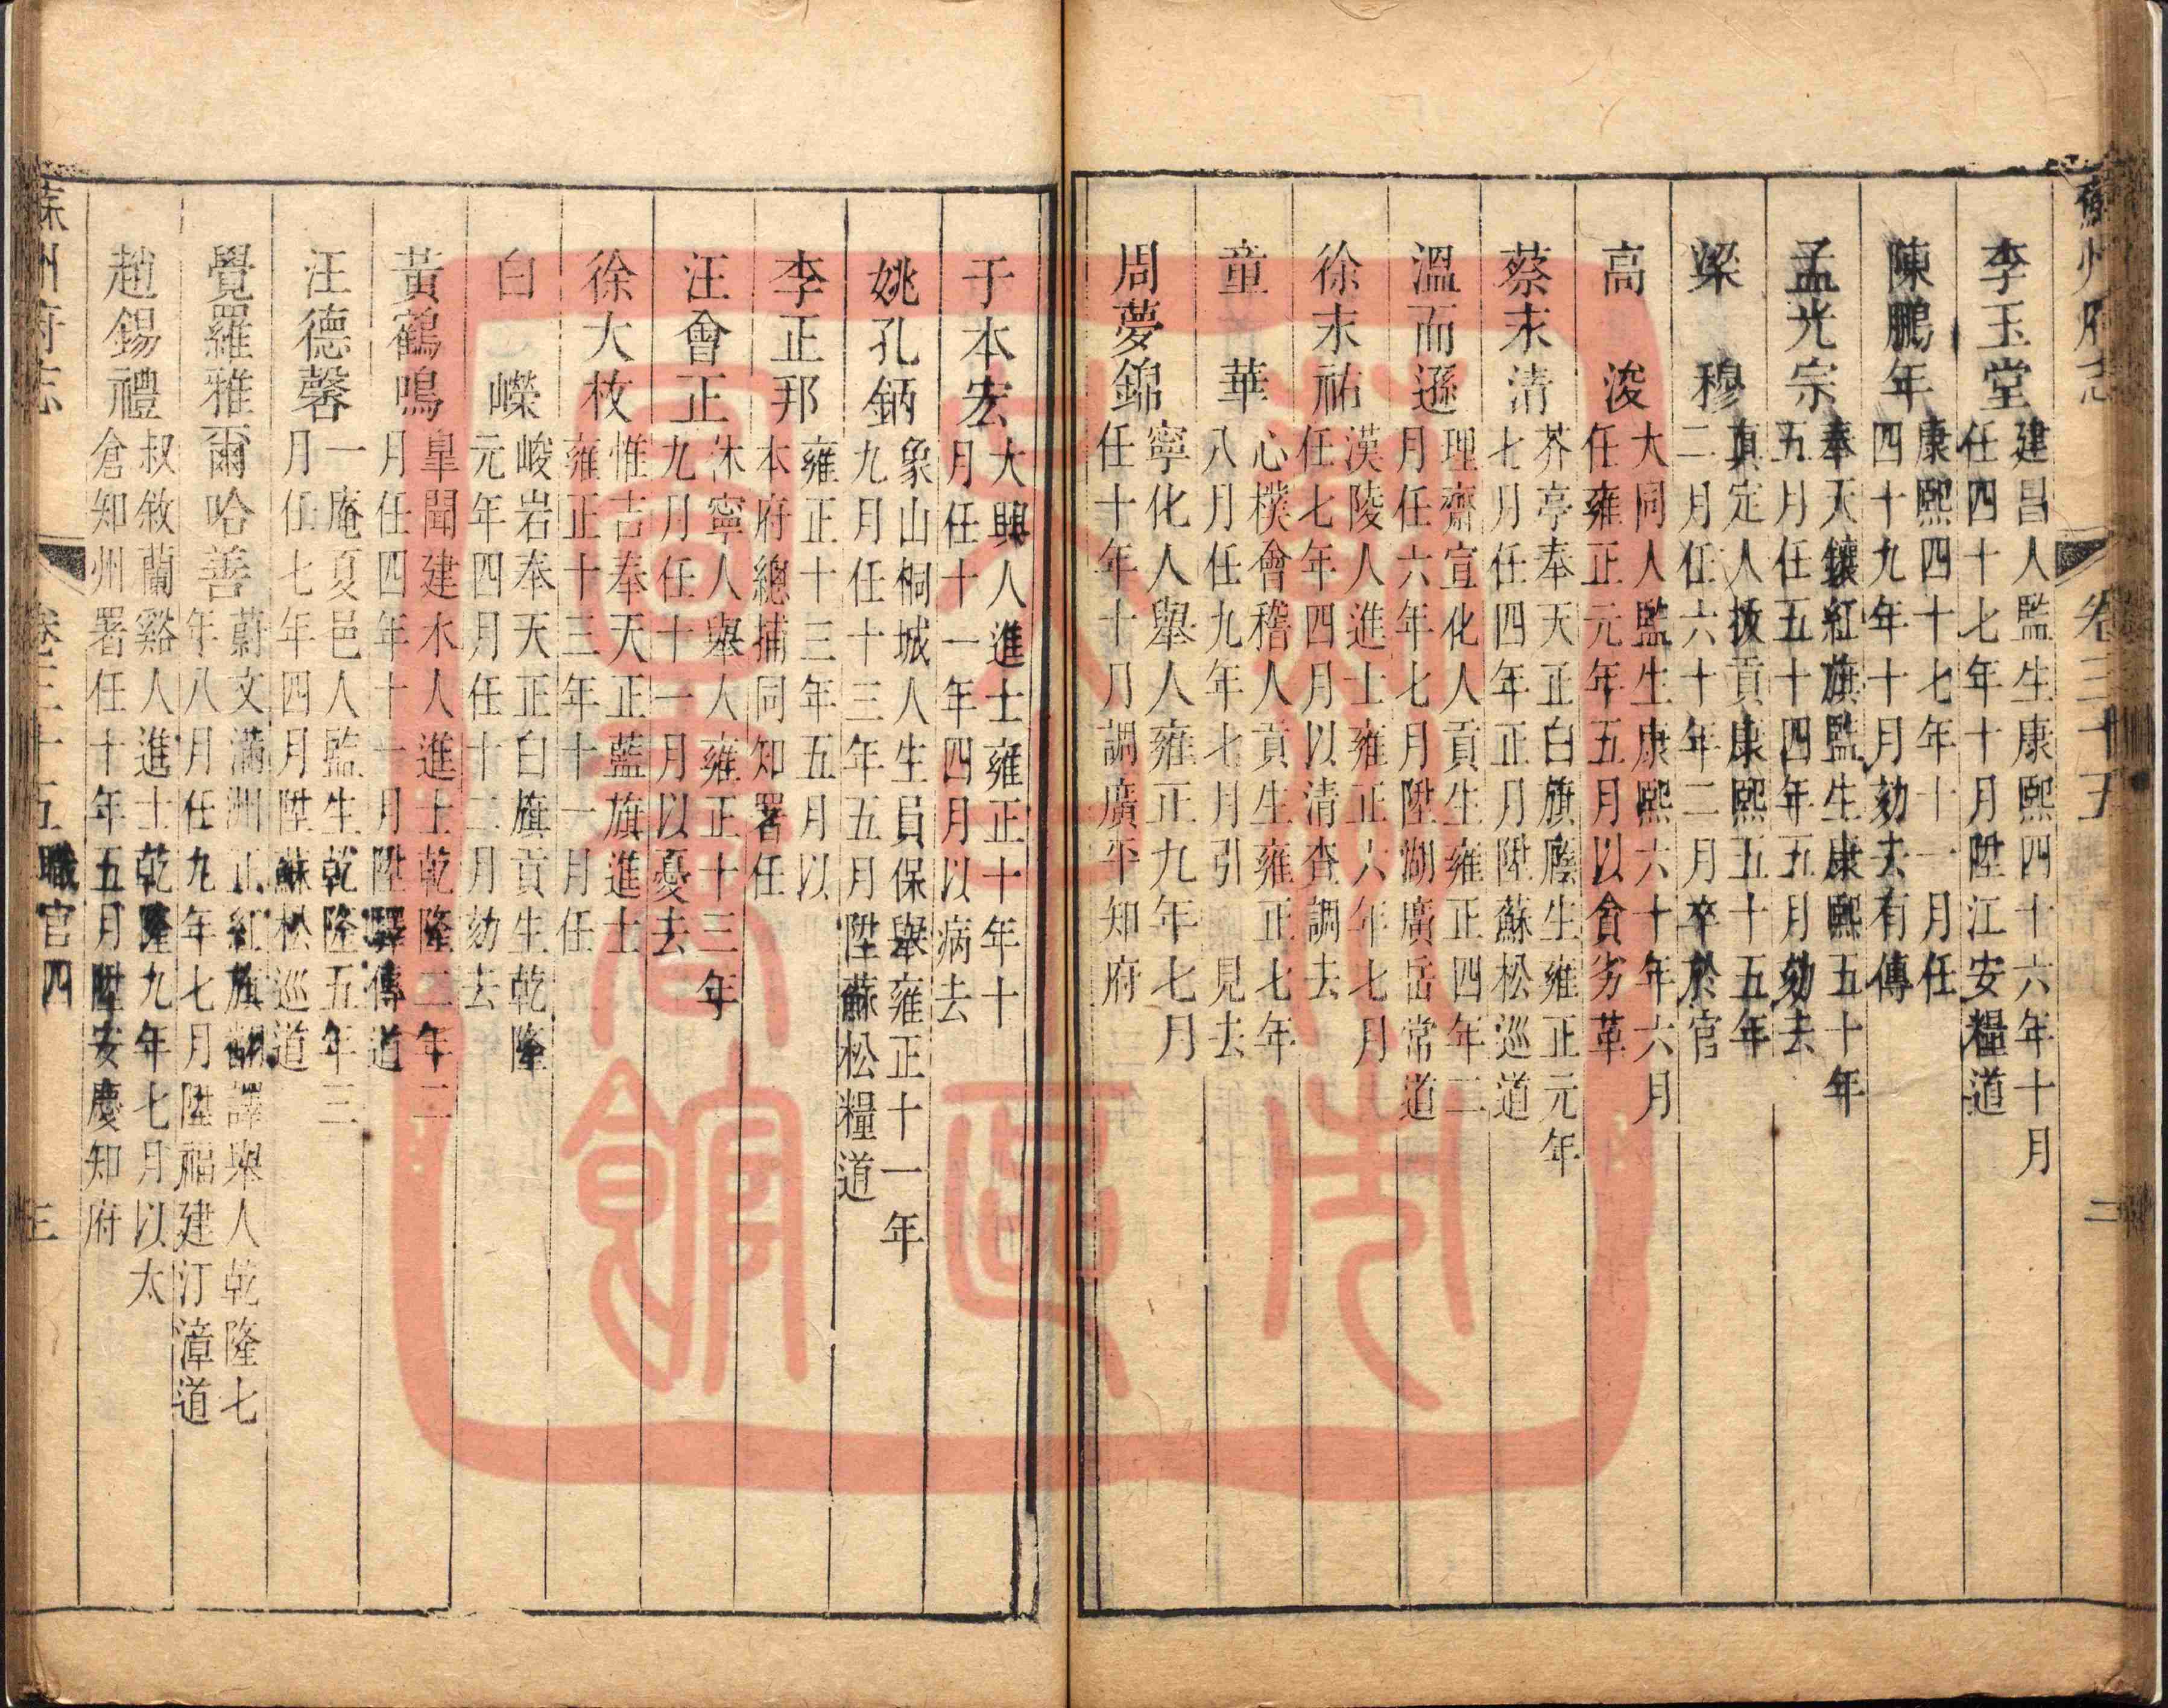 蘇州府志
卷三十五
二
李玉堂
建昌人監生康熙四十六年十月
任四十七年十月陞江安糧道
陳鵬年
康熙四十七年十一月任
四十九年十月劾去有傳
孟光宗
奉天鑲紅旗監生康熙五十年
五月任五十四年五月劾去
梁穆
真定人拔貢康熙五十五年
二月任六十年二月卒於官
高浚
大同人監生康熙六十年六月
任雍正元年五月以貪劣革
蔡永清
芥亭奉天正白旗廕生雍正元年
七月任四年正月陞蘇松巡道
溫而遜
理齋宣化人貢生雍正四年二
月任六年七月陞湖廣岳常道
徐永祐
漢陵人進士雍正六年七月
任七年四月以清查調去
童華
心樸會稽人貢生雍正七年
八月任九年七月引見去
周夢錦
寧化人舉人雍正九年七月
任十年十月調廣平知府
于本宏
大興人進士雍正十年十
月任十一年四月以病去
姚孔鈵
象山桐城人生員保舉雍正十一年
九月任十三年五月陞蘇松糧道
李正邦
雍正十三年五月以
本府總捕同知署任
汪會正
休寧人舉人雍正十三年
九月任十一月以憂去
徐大枚
惟吉奉天正藍旗進士
雍正十三年十一月任
白嶸
峻岩奉天正白旗貢生乾隆
元年四月任十二月劾去
黃鶴鳴
皐聞建水人進士乾隆二年二
月任四年十一月陞驛傳道
汪德馨
一庵夏邑人監生乾隆五年三
月任七年四月陞蘇松巡道
覺羅雅爾哈善
蔚文滿洲正紅旗繙譯舉人乾隆七
年八月任九年七月陞福建汀漳道
趙錫禮
叔敘蘭谿人進士乾隆九年七月以太
倉知州署任十年五月陞安慶知府
蘇州府志
卷三十五職官四
三